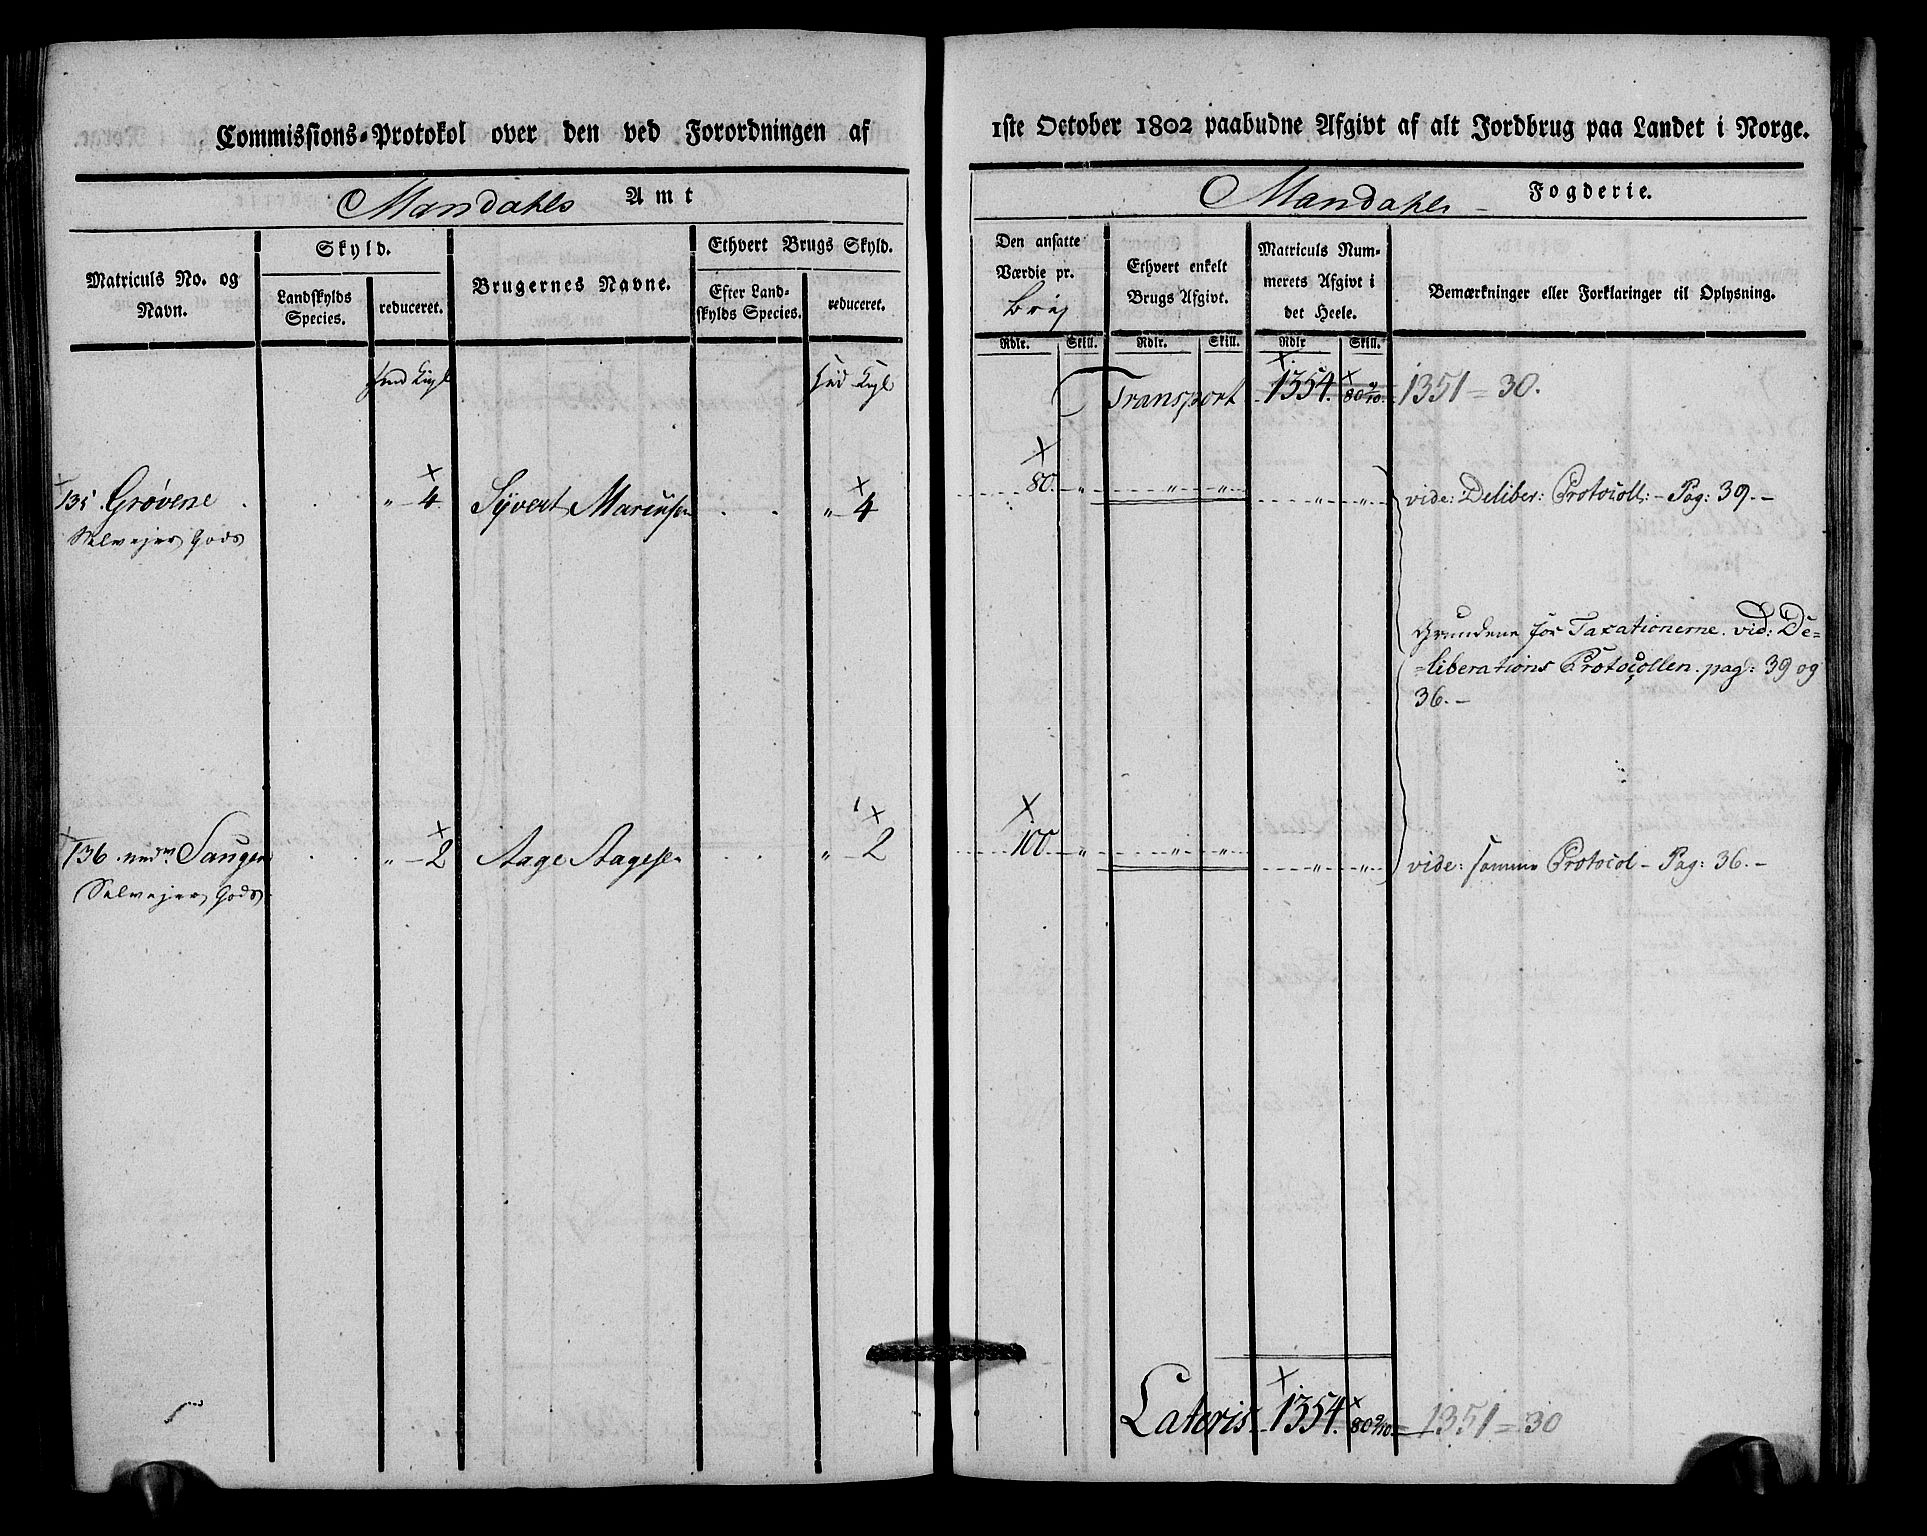 Commissions-Protokol over den ved Forordningen af
Mandahls Amt
Matriculs No. og Navn.
Skyld.
Landskylds Species.
reduceret.
Brugernes Navne.
Ethvert Brugs Skyld.
Efter Landskylds Species.
reduceret.
135 Grøvene " 4 Syvert " 4
Selvejer Gods
136 Saugen " 2 Aage Aagesen " 2
Selvejer Gods
1ste October 1802 paabudne Afgivt af alt Jordbrug paa Landet i Norge.
Mandahls Fogderie.
Den ansatte Værdie pr.
Brug
Ethvert enkelt Brugs Afgivt.
Matriculs Nummerets Afgivt i det Heele.
Bemærkninger eller Forklaringer til Oplysning.
Rdlr. Skill. Rdlr. Skill. Rdlr Skill.
Transport 1354. 80 9/10. 1351 = 30.
80 " " " " " vide: Deliber: Protocoll: - Pag: 39. -
Grundene for Taxationerne. vid: De=
=liberations Protocollen. pag: 39 og
36. -
100 " " " " " vide: samme Protocol - Pag: 36. -
Lateris 1354. 80 9/10 = 1351 = 30